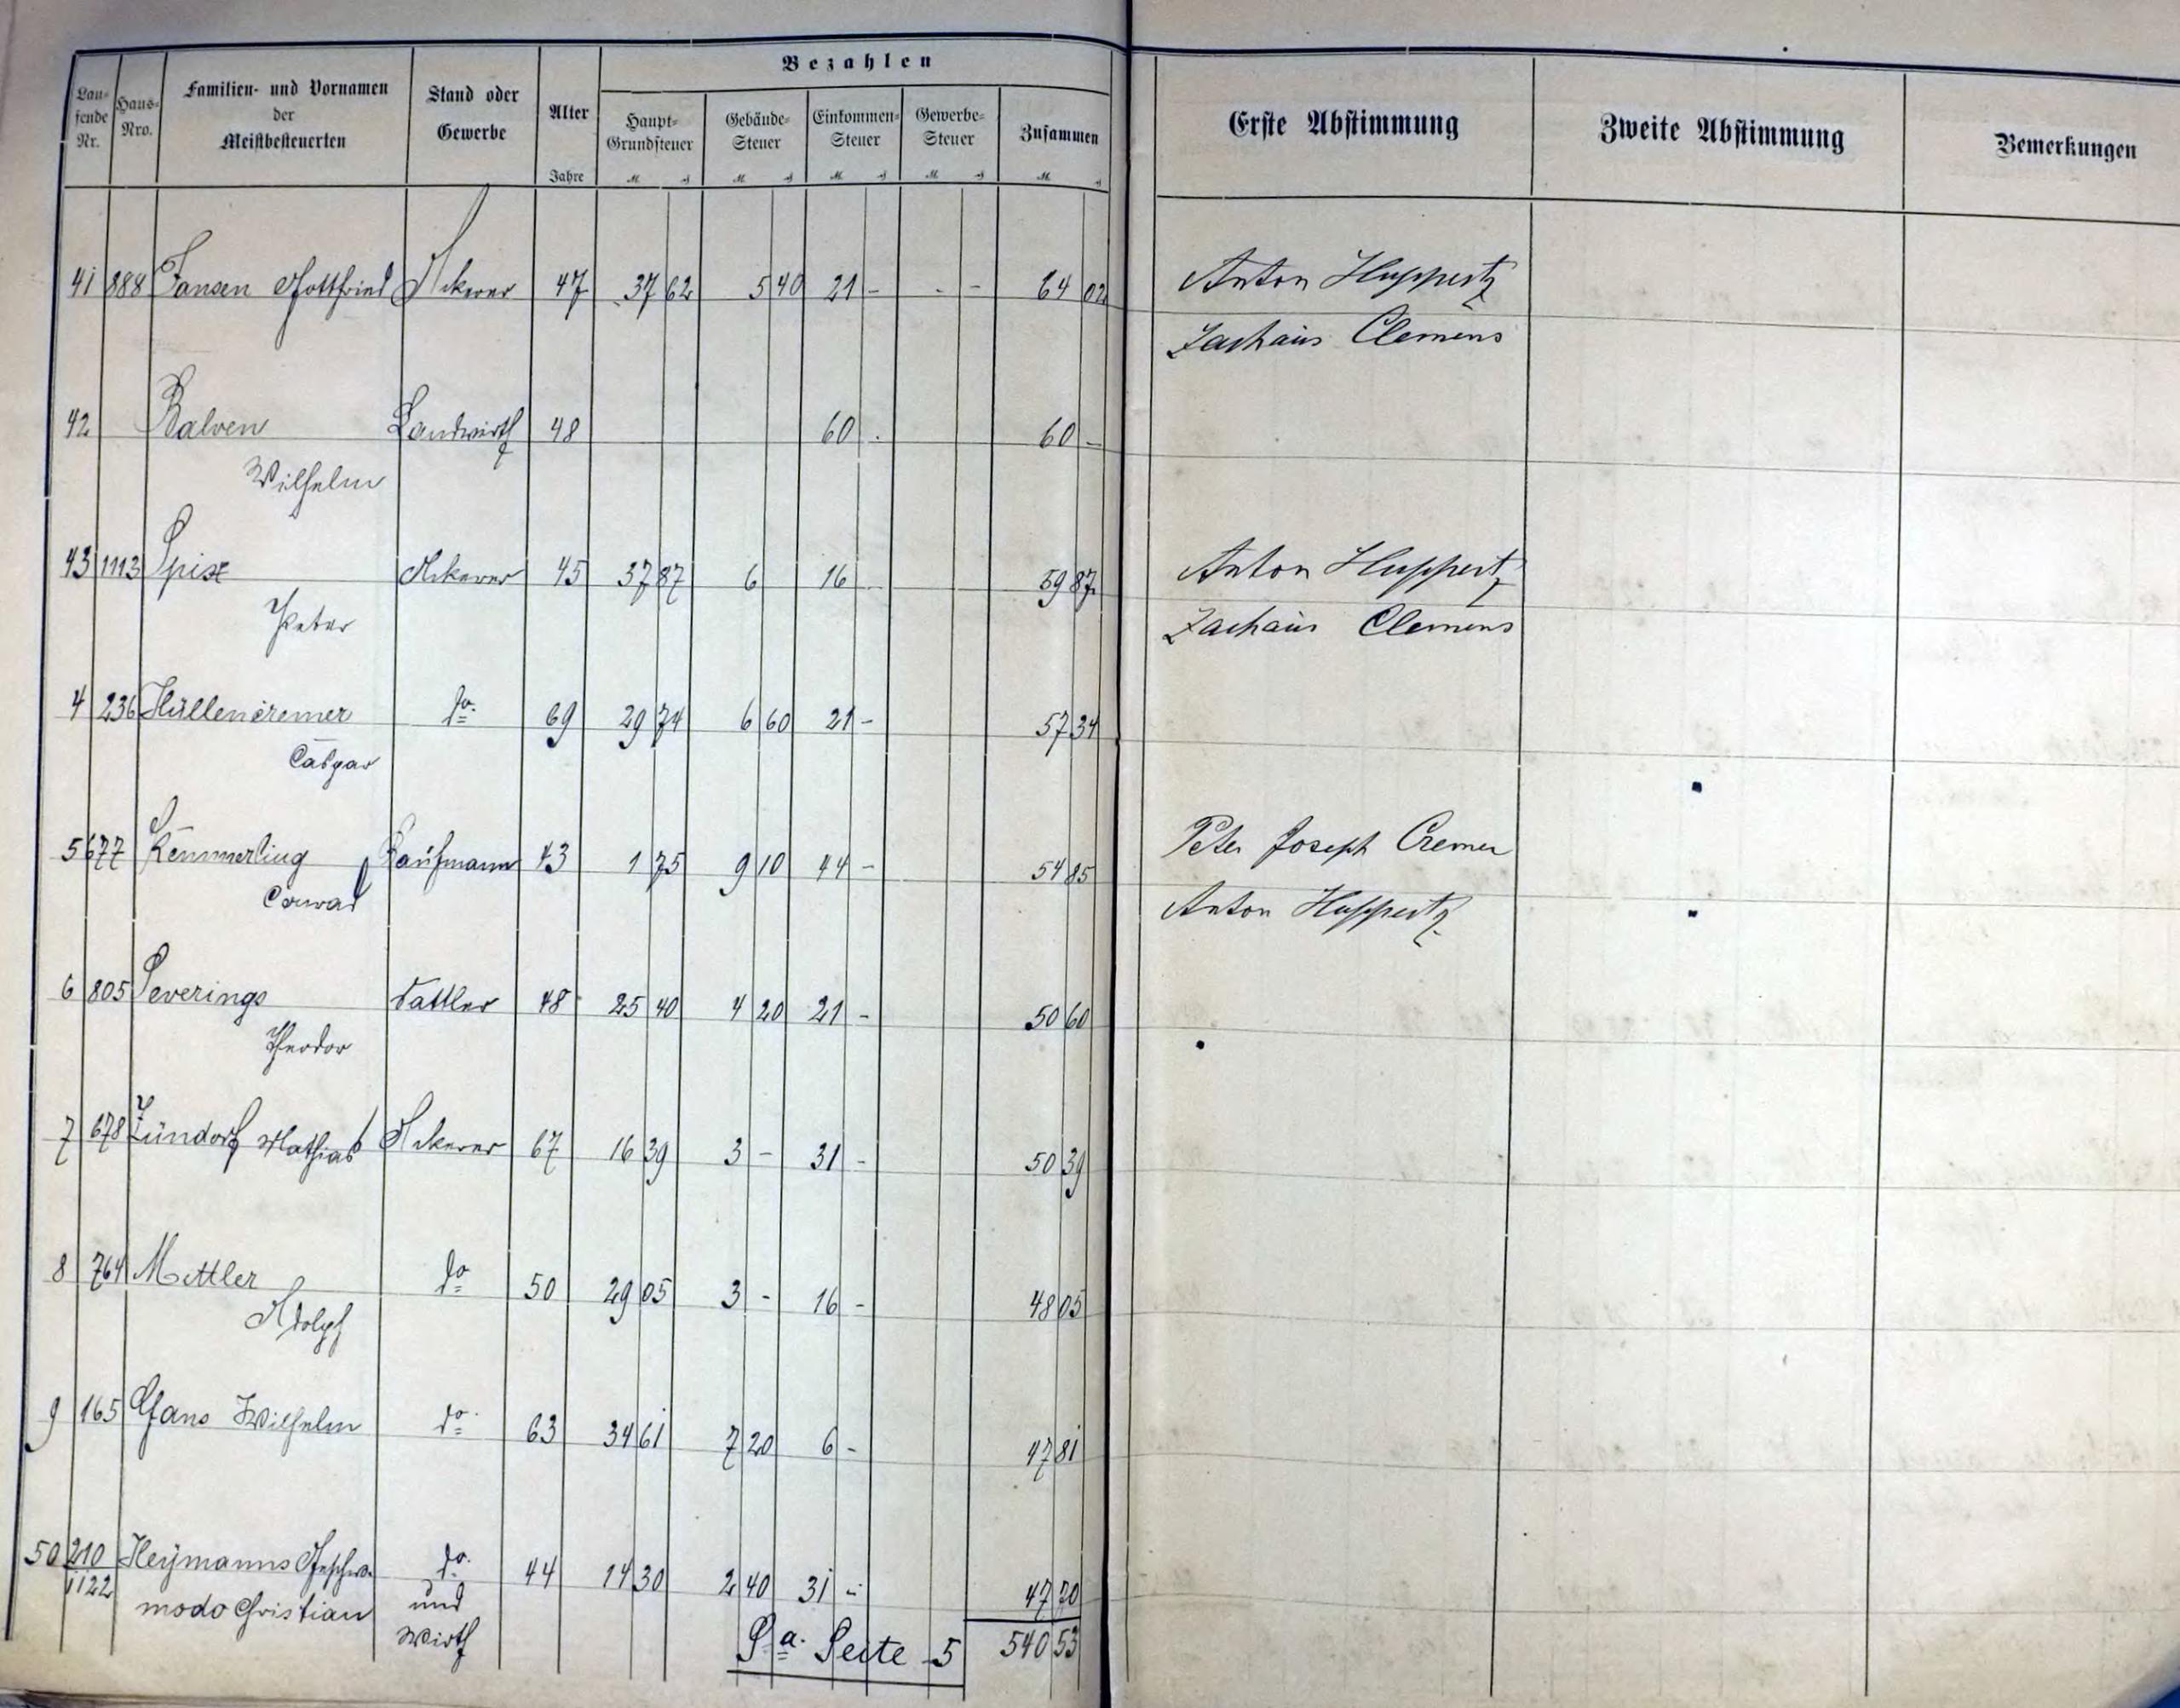 Bezahlen
Lau-
fende
Nr.
Haus-
Nro.
Familien- und Vornamen
der
Meistbesteuerten
Stand oder
Gewerbe
Alter
Jahre
Haupt-
Grundsteuer
Gebäude-
Steuer
Einkommen-
Steuer
Gewerbe-
Steuer
Zusammen
Erste Abstimmung
Zweite Abstimmung
Bemerkungen
41 888 Jansen Gottfried Ackerer 47 37 62 5 40 21 - - - 64 02 Anton Huppertz
Zachäus Clemens
42 Balven Landwirth 48 60 - 60 -
Wilhelm
43 1113 Spix Ackerer 45 37 87 6 16 59 87 Anton Huppertz
Peter Zachäus Clemens
4 236 Hüllencremer do. 69 29 74 6 60 21 - 57 34
Caspar
5 677 Kemmerling Kaufmann 43 1 75 9 10 44 - 54 85 Peter Joseph Cremer
Conrad Anton Huppertz
6 805 Severings Sattler 48 25 40 4 20 21 - 50 60
Theodor
7 678 Zündorf Mathias Ackerer 67 16 39 3 - 31 - 50 39
8 764 Mettler do 50 29 05 3 - 16 - 48 05
Adolph
9 165 Gans Wilhelm do. 63 34 61 7 20 6 - 47 81
50 210 Heÿmanns Geschw. do. 44 14 30 2 40 31 - 47 70
1122 modo Christian und
Wirth
Sa. Seite 5 540 53